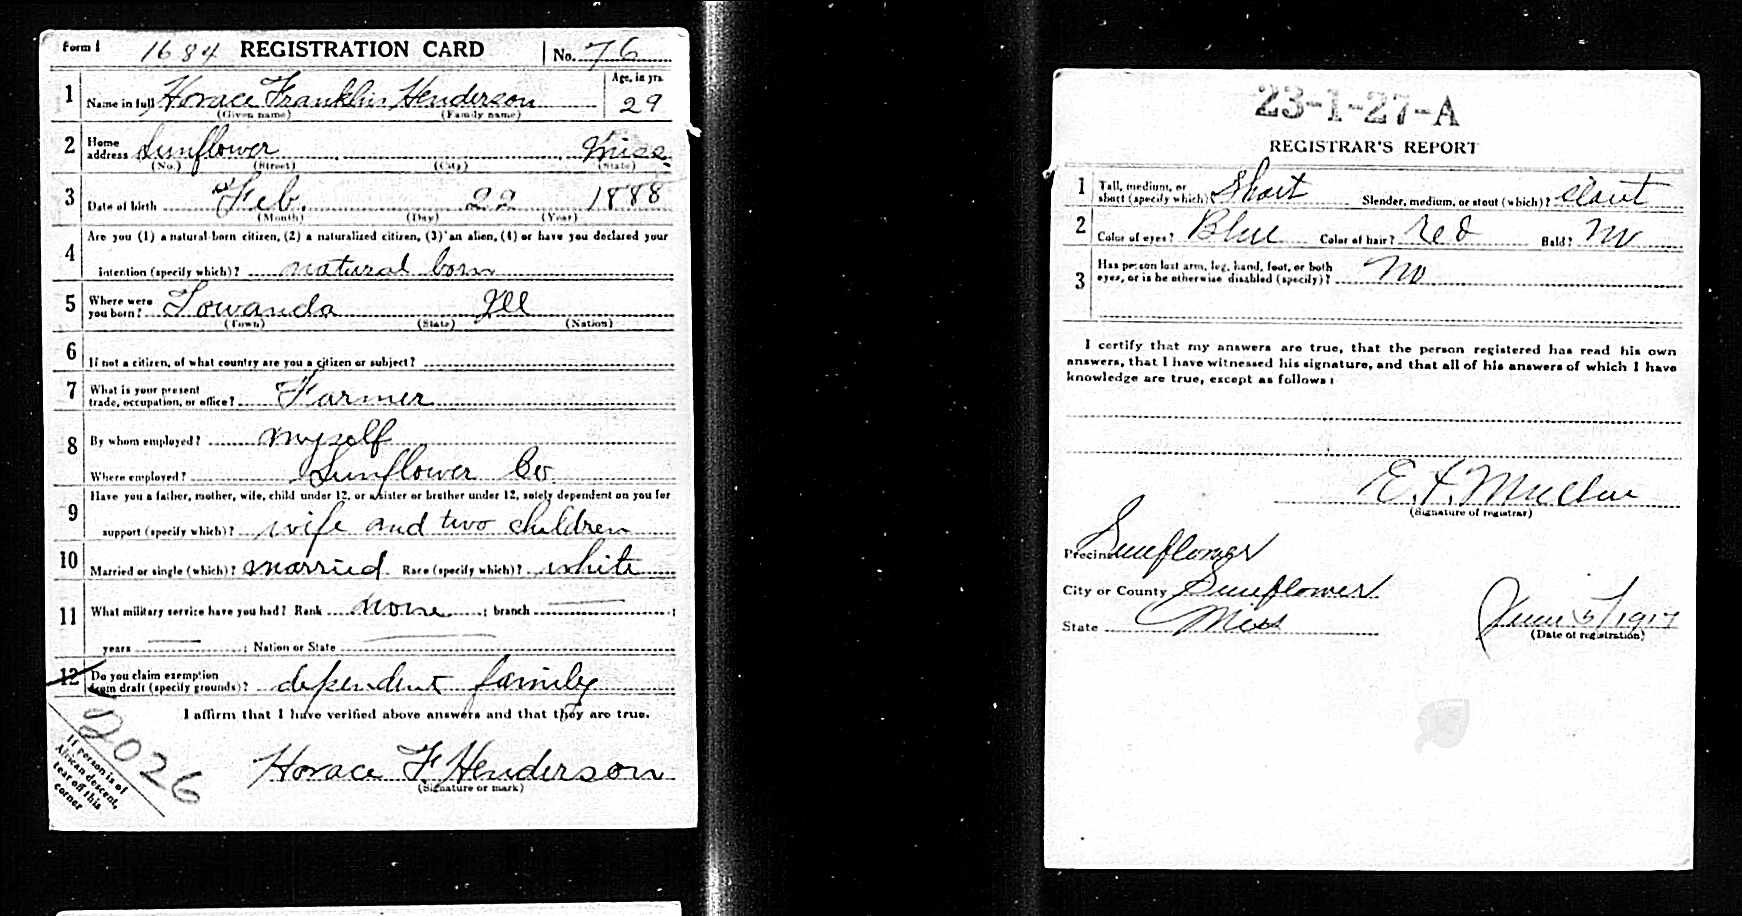 Form 1 1684 REGISTRATION CARD No. 76
1 Name in full Horace Franklin Henderson Age, in yrs. 29
(Given name) (Family name)
2 Home address Sunflower Miss.
(No.) (Street) (City) (State)
3 Date of birth Feb. 22 1888
(Month) (Day) (Year)
4 Are you (1) a natural-born citizen, (2) a naturalized citizen, (3) an alien, (4) or have you declared your
intention (specify which)? natural born
5 Where were you born? Towanda Ill
(Town) (State) (Nation)
6 If not a citizen, of what country are you a citizen or subject?
7 What is your present
trade, occupation, or office? Farmer
8 By whom employed? myself
Where employed? Sunflower Co
9 Have you a father, mother, wife, child under 12, or a sister or brother under 12, solely dependent on you for
support (specify which)? wife and two children
10 Married or single (which)? married Race (specify which)? white
11 What military service have you had? Rank none ; branch ;
years ; Nation or State
12 Do you claim exemption
from draft (specify grounds)? dependent family
I affirm that I have verified above answers and that they are true.
Horace F. Henderson
(Signature or mark)
2026
If person is of
African descent,
tear off this
corner
23-1-27-A
REGISTRAR'S REPORT
1 Tall, medium, or
short (specify which)? Short Slender, medium, or stout (which)? stout
2 Color of eyes? Blue Color of hair? red Bald? no
3 Has person lost arm, leg, hand, foot, or both
eyes, or is he otherwise disabled (specify)? no
I certify that my answers are true, that the person registered has read his own
answers, that I have witnessed his signature, and that all of his answers of which I have
knowledge are true, except as follows:
E.
(Signature of registrar)
Precinct Sunflower
City or County Sunflower
State Miss
June 5/1917
(Date of registration)